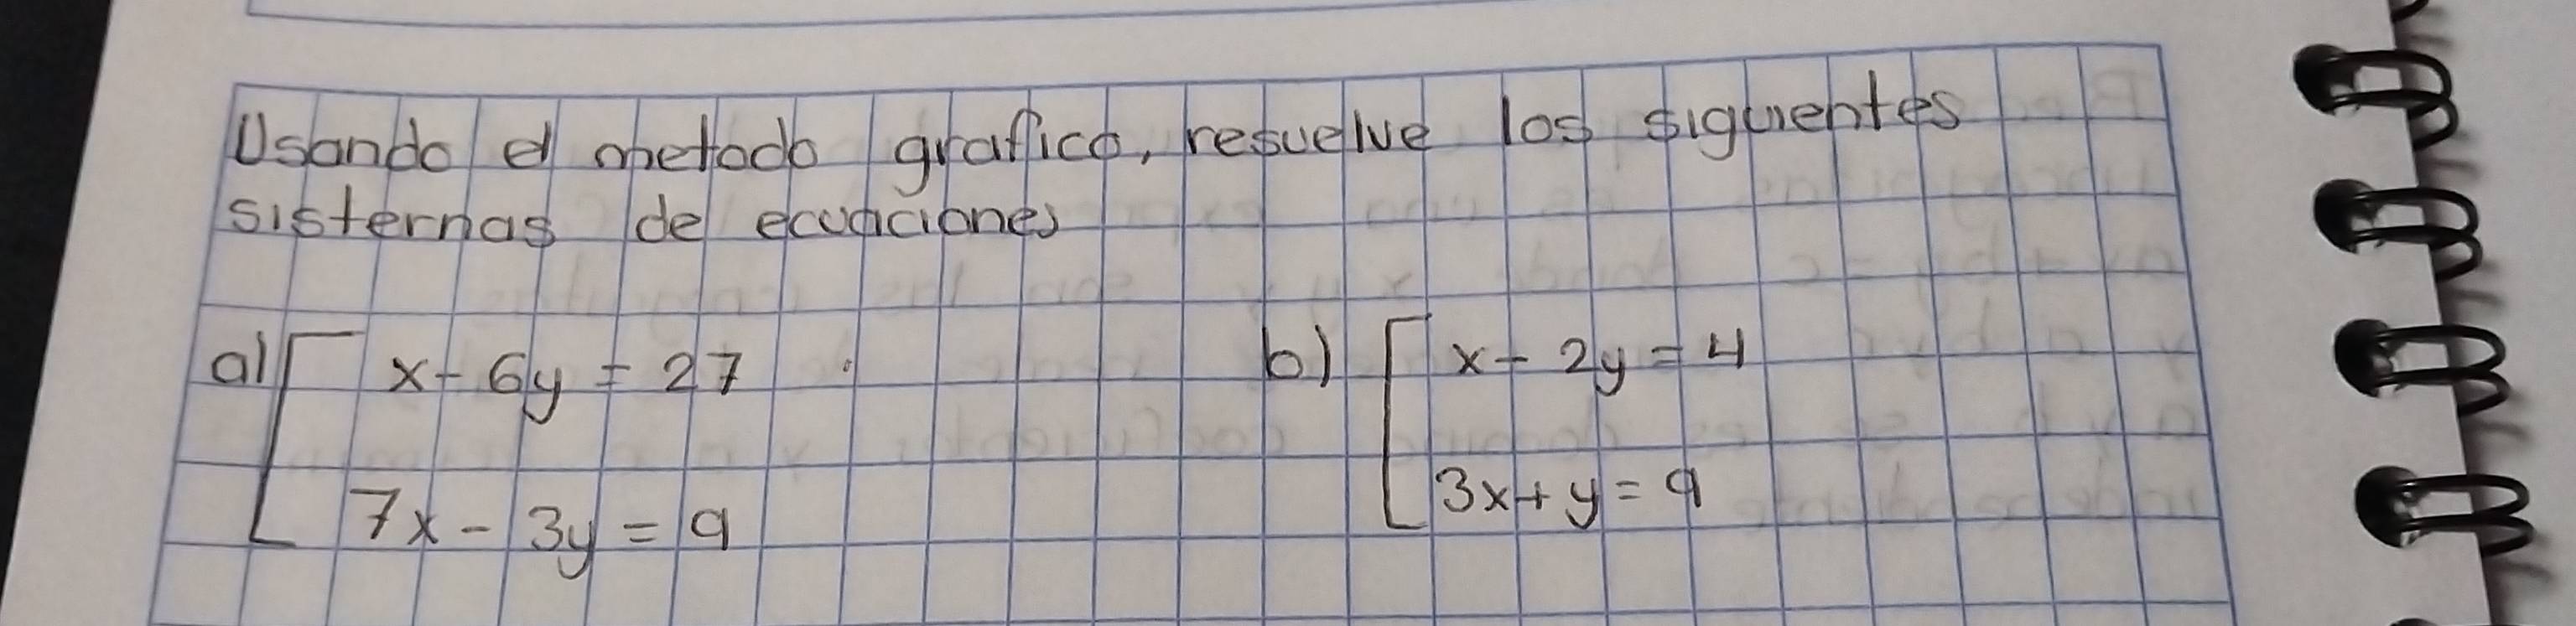 Usando el metodo grafico, resuelve los siguientes
sistemas de ecuaciones
a) x - 6y = 27 b) x - 2y = 4
7x - 3y = 9 3x + y = 9